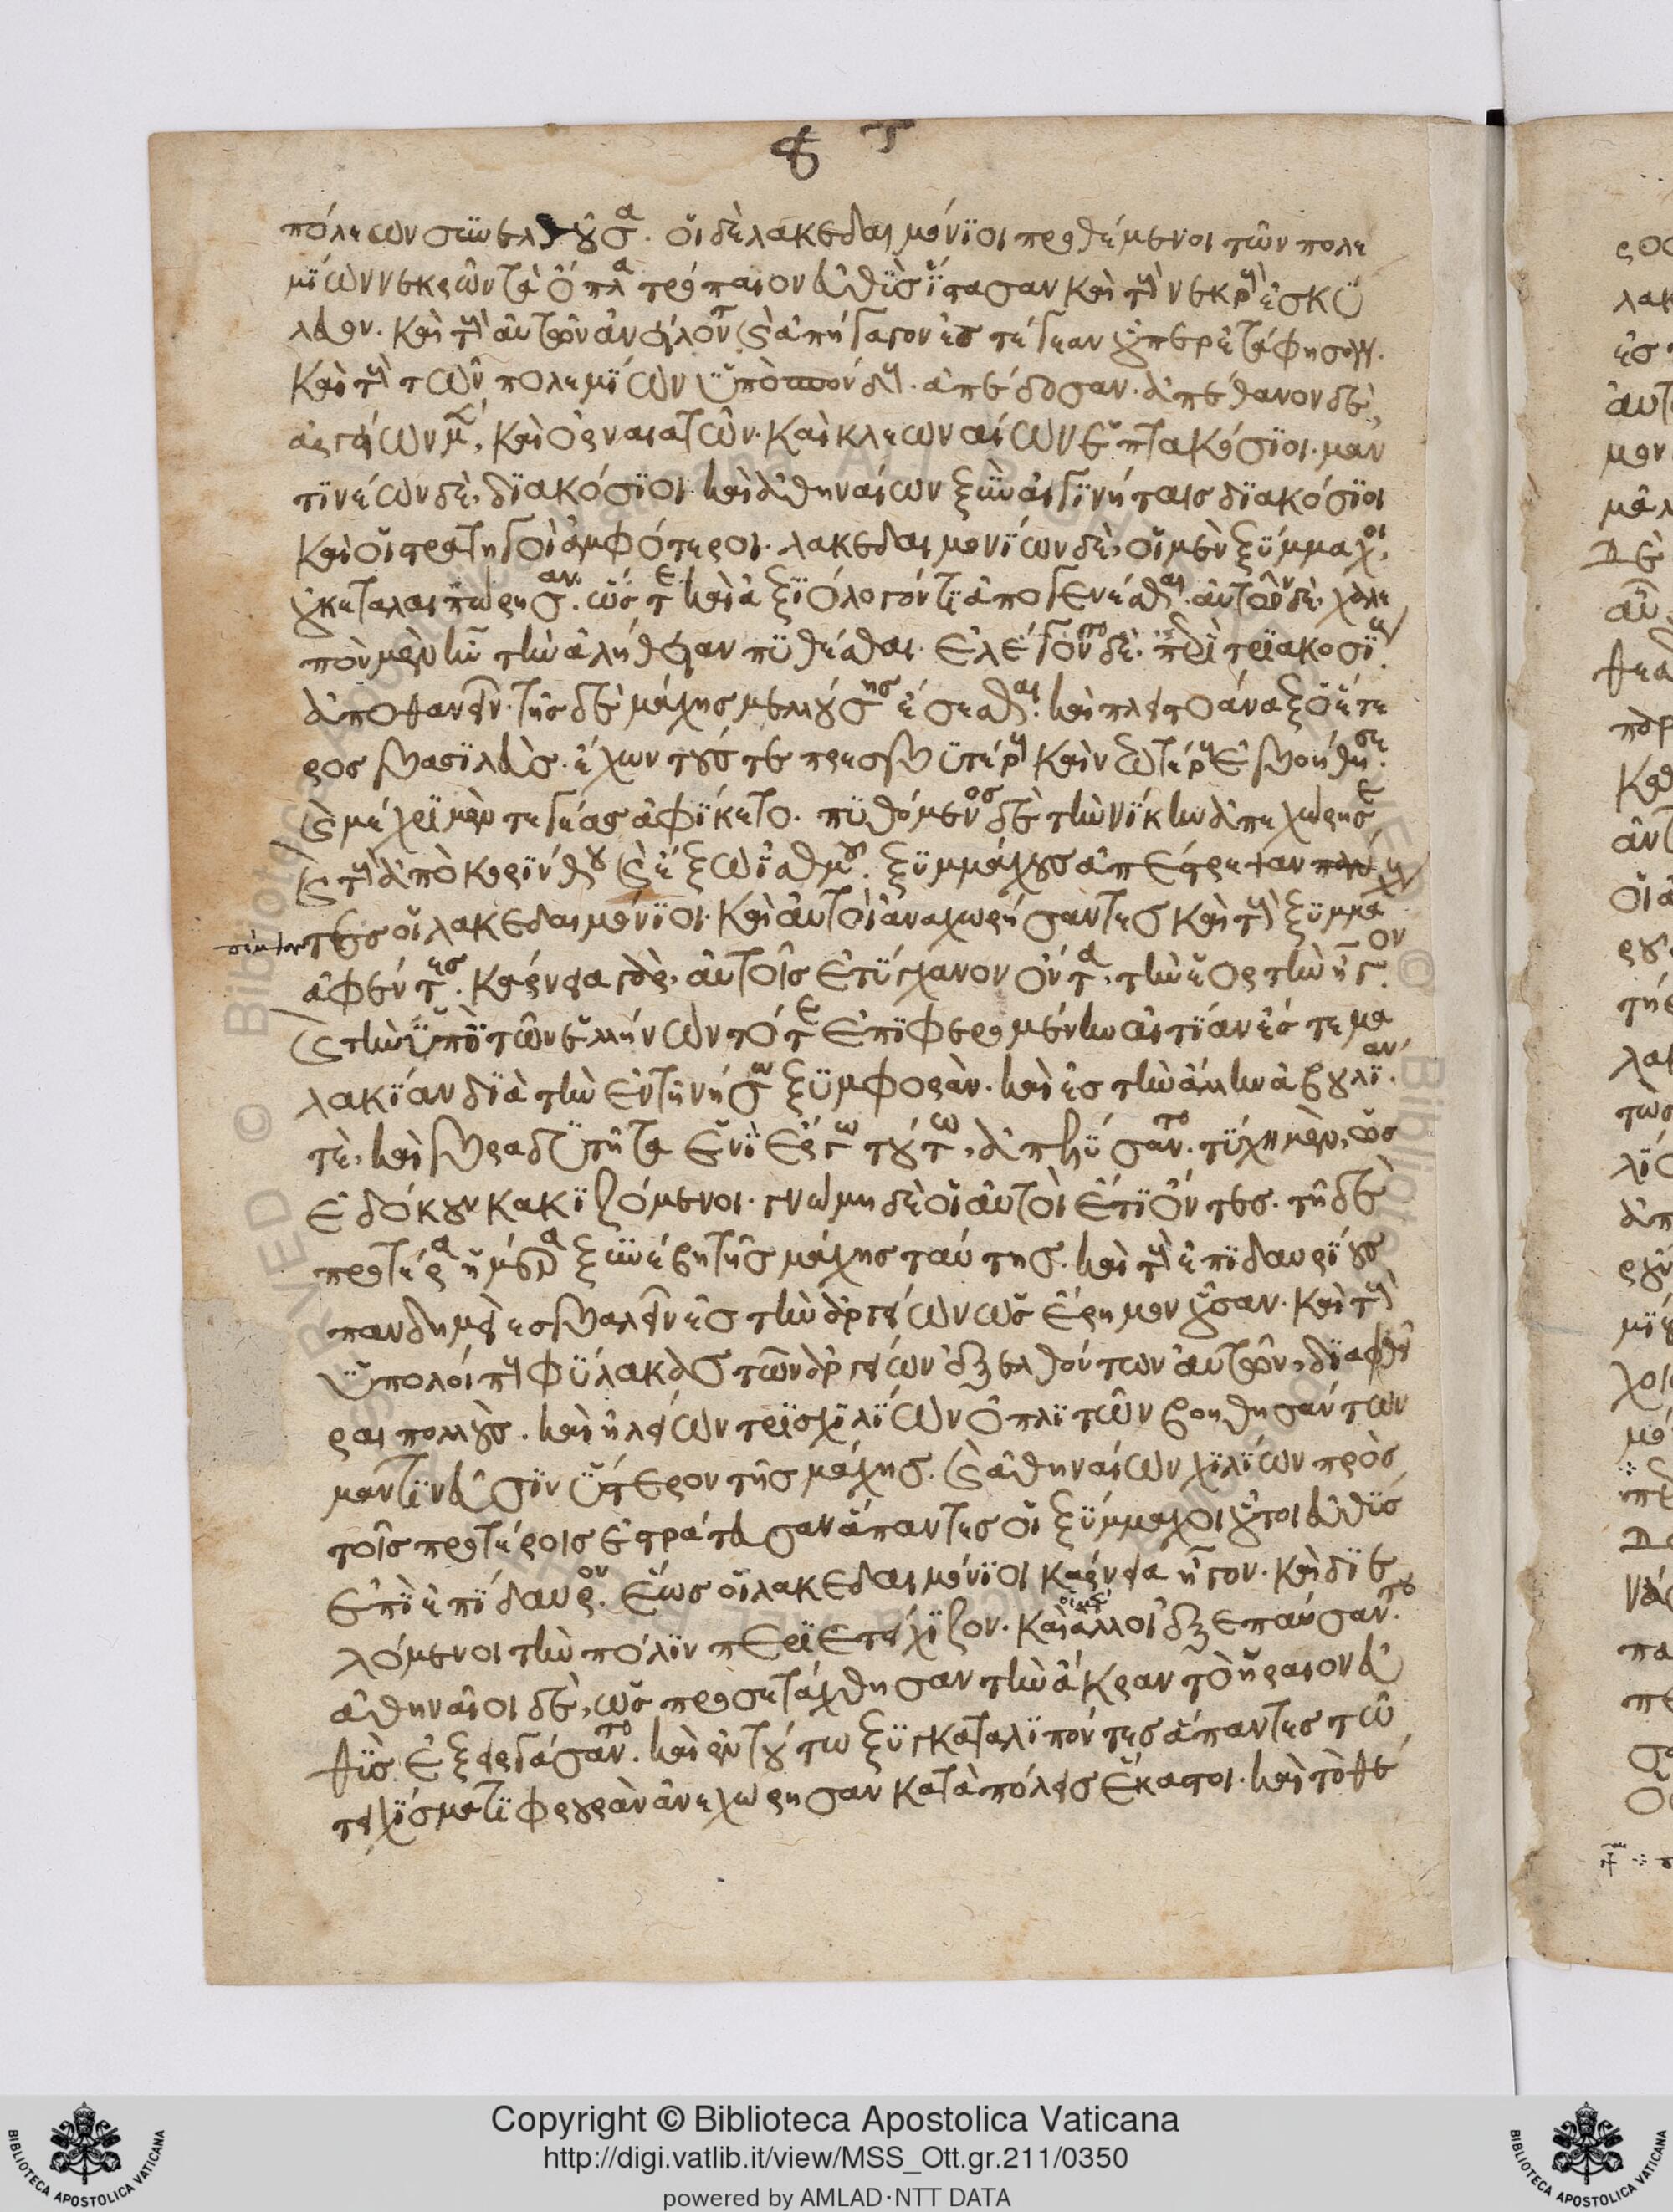 πόλεων συνελθοῦσα. οἱ δὲ λακεδαιμόνϊοι προθέμενοι τῶν πολε
μΐων νεκρῶν τὰ ὅπλα τρόπαιον εὐθὺς ἵστασαν καὶ τοὺς νεκροὺς ἐσκύ
λευον. καὶ τοὺς αὐτῶν ἀνείλοντο καὶ ἀπήγαγον ἐς τέγεαν οὗπερ ἐτάφησαν.
καὶ τοὺς τῶν πολεμίων ὑπὸσπόνδους. ἀπέδοσαν. ἀπέθανον δὲ,
ἀργείων μὲν, καὶ ὀρνεατῶν. καὶ κλεωναίων ἑπτακόσϊοι. μαν
τϊνέων δὲ, δϊακόσϊοι. καὶ ἀθηναίων ξὺν αἰγϊνήταις δϊακόσϊοι
καὶ οἱ στρατηγοὶ ἀμφότεροι. λακεδαιμονΐων δὲ, οἱ μὲν ξύμμαχοι,
οὐκ ἐταλαιπώρησαν. ὥστε καὶ ἀξϊόλογόν τϊ ἀπογενέσθαι. αὐτῶν δὲ, χαλε
πὸν μὲν ἦν τὴν ἀλήθειαν πϋθέσθαι. ἐλέγοντο δὲ. περὶ τρϊακοσΐους
ἀποθανεῖν. τῆς δὲ μάχης μελλούσης ἔσεσθαι. καὶ πλειστοάναξ ὁ ἕτε
ρος βασϊλεὺς. ἔχων τούς τε πρεσβϋτέρους καὶ νεωτέρους ἐβοήθησε.
καὶ μέχρϊ μὲν τεγέας ἀφΐκετο. πϋθόμενος δὲ τὴν νΐκην ἀπεχώρησε,
καὶ τοὺς ἀπὸ κορΐνθου καὶ ἔξω ἰσθμοῦ. ξϋμμάχους ἀπέστρεψαν πέμ
τες οἱ λακεδαιμόνϊοι. καὶ αὐτοὶ ἀναχωρήσαντες καὶ τοὺς ξϋμμάχους
ἀφέντες. κάρνεια γὰρ, αὐτοῖς ἐτύγχανον ὄντα, τὴν ἑορτὴν ἦγον.
καὶ τὴν ὑπὸ τῶν ἑλλήνων τότε ἐπϊφερομένην αἰτίαν ἔς τε μα
λακΐαν δϊὰ τὴν ἐν τῇ νήσῳ ξϋμφορὰν. καὶ ἐς τὴν ἄλλην ἀβουλΐαν
τὲ, καὶ βραδϋτῆτα ἑνὶ ἔργῳ τούτῳ, ἀπελύσαντο. τύχῃ μὲν, ὡς
ἐδόκουν κακϊζόμενοι. γνώμῃ δὲ οἱ αὐτοὶ ἔτϊ ὄντες. τῇ δὲ
προτέρᾳ ἡμέρᾳ ξϋνέβη τῆς μάχης ταύτης. καὶ τοὺς ἐπϊδαυρΐους
πανδημεὶ ἐσβαλεῖν ἐς τὴν ἀργείων ὡς ἔρημον οὖσαν. καὶ τοὺς
ὑπολοίπους φϋλακὰς τῶν ἀργείων ἐξελθόντων αὐτῶν, δϊαφθεῖ
ραι πολλοὺς. καὶ ἠλείων τρϊσχϊλΐων ὁπλϊτῶν βοηθησάντων
μαντϊνεῦσϊν ὕστερον τῆς μάχης. καὶ ἀθηναίων χϊλΐων πρὸς
τοῖς προτέροις ἐστράτευσαν ἅπαντες οἱ ξύμμαχοι οὗτοι εὐθϋς
ἐπὶ ἐπΐδαυρον. ἕως οἱ λακεδαιμόνϊοι κάρνεια ἦγον. καὶ δϊε
λόμενοι τὴν πόλϊν περϊετείχϊζον. καὶ οἱ μὲν ἄλλοι ἐξεπαύσαντο.
ἀθηναῖοι δὲ, ὡς προσετάχθησαν τὴν ἄκραν τὸ ἥραιον εὐ
θὺς ἐξειργάσαντο. καὶ ἐν τούτῳ ξϋγκαταλϊπόντες ἅπαντες τῷ
τειχΐσματϊ φρουρὰν ἀνεχώρησαν κατὰ πόλεις ἕκαστοι. καὶ τὸ θέ
Copyright © Biblioteca Apostolica Vaticana
http://digi.vatlib.it/view/MSS_Ott.gr.211/0350
powered by AMLAD·NTT DATA
BIBLIOTECA APOSTOLICA VATICANA
BIBLIOTECA APOSTOLICA VATICANA